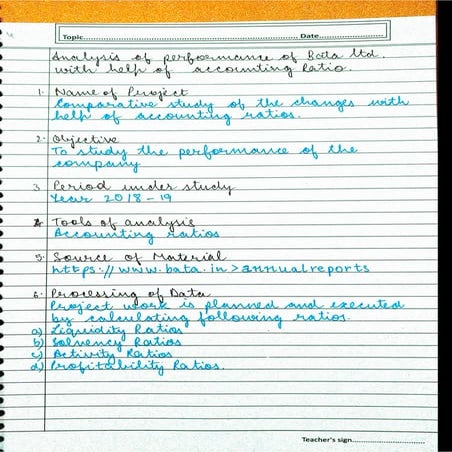 Topic Date
Analysis of performance of Bata Ltd.
with help of accounting Ratio.
1. Name of Project
Comparative study of the changes with
help of accounting ratios.
2. Objective
To study the performance of the
company
3. Period under study
Year 2018-19
4. Tools of analysis
Accounting ratios
5. Source of Material
https://www.bata.in>annualreports
6. Processing of Data
Project work is planned and executed
by calculating following ratios.
a) Liquidity Ratios
b) Solvency Ratios
c) Activity Ratios
d) Profitability Ratios.
Teacher's sign.